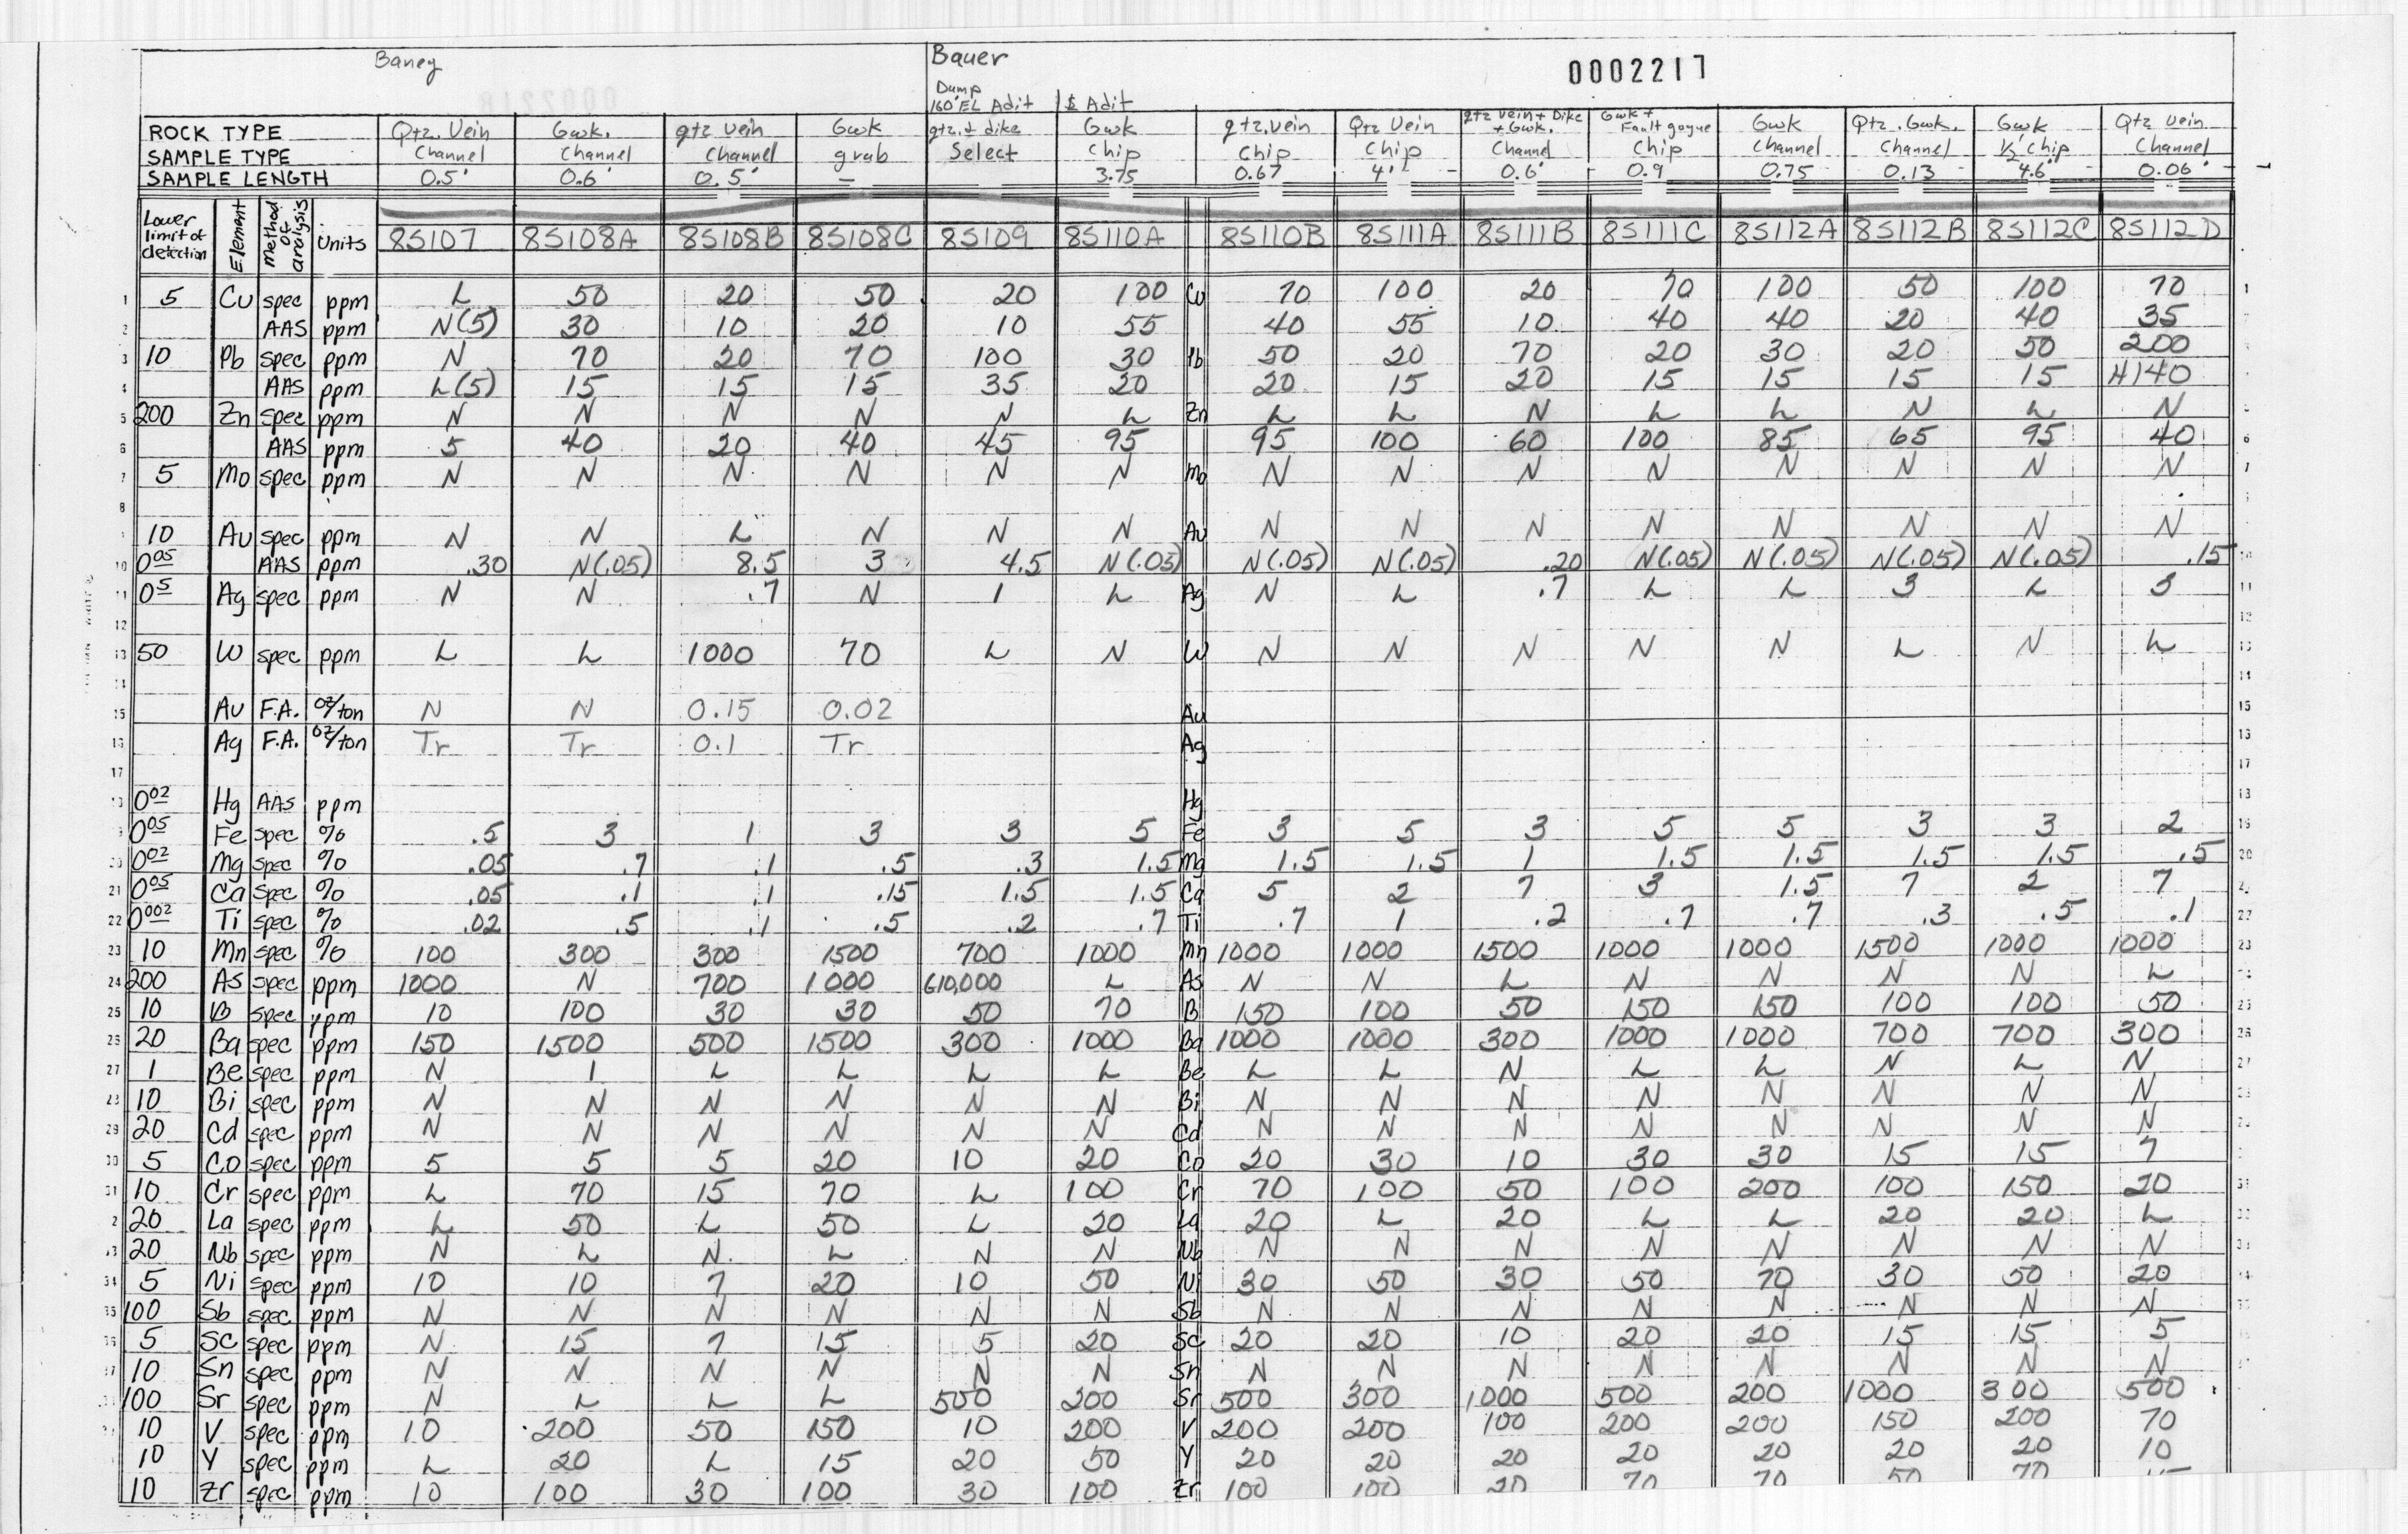 Baney Bauer 0002217
Dump
160' EL Adit $ Adit
ROCK TYPE Qtz. Vein Gwk. qtz vein Gwk qtz. ± dike Gwk qtz. vein Qtz Vein qtz vein + Dike + Gwk. Gwk + Fault gouge Gwk Qtz. Gwk. Gwk Qtz vein
SAMPLE TYPE Channel Channel Channel grab Select Chip Chip Chip Channel Chip Channel Channel ½' Chip Channel
SAMPLE LENGTH 0.5' 0.6' 0.5' — 3.75 0.67 4' 0.6' 0.9 0.75 0.13 4.6' 0.06'
Lower limit of detection Element method of analysis Units 8S107 8S108A 8S108B 8S108C 8S109 8S110A 8S110B 8S111A 8S111B 8S111C 8S112A 8S112B 8S112C 8S112D
1 5 Cu spec ppm L 50 20 50 20 100 Cu 70 100 20 70 100 50 100 70 1
2 AAS ppm N(5) 30 10 20 10 55 40 55 10 40 40 20 40 35
3 10 Pb spec ppm N 70 20 70 100 30 Pb 50 20 70 20 30 20 50 200
4 AAS ppm L(5) 15 15 15 35 20 20 15 20 15 15 15 15 H140
5 200 Zn spec ppm N N N N N L Zn L L N L L N L N
6 AAS ppm 5 40 20 40 45 95 95 100 60 100 85 65 95 40 6
7 5 Mo spec ppm N N N N N N Mo N N N N N N N N
8
10 Au spec ppm N N L N N N Au N N N N N N N N
10 0.05 AAS ppm .30 N(.05) 8.5 3 4.5 N(.05) N(.05) N(.05) .20 N(.05) N(.05) N(.05) N(.05) .15 10
11 0.5 Ag spec ppm N N .7 N 1 L Ag N L .7 L L 3 L 3 11
12
13 50 W spec ppm L L 1000 70 L N W N N N N N L N L 13
14 14
15 Au F.A. oz/ton N N 0.15 0.02 Au 15
16 Ag F.A. oz/ton Tr Tr 0.1 Tr Ag 16
17 17
18 0.02 Hg AAS ppm Hg 18
0.05 Fe spec % .5 3 1 3 3 5 Fe 3 5 3 5 5 3 3 2 19
20 0.02 Mg spec % .05 .7 .1 .5 .3 1.5 Mg 1.5 1.5 1 1.5 1.5 1.5 1.5 .5 20
21 0.05 Ca spec % .05 .1 .1 .15 1.5 1.5 Ca 5 2 7 3 1.5 7 2 7
22 0.002 Ti spec % .02 .5 .1 .5 .2 .7 Ti .7 1 .2 .7 .7 .3 .5 .1 22
23 10 Mn spec % 100 300 300 1500 700 1000 Mn 1000 1000 1500 1000 1000 1500 1000 1000 23
24 200 As spec ppm 1000 N 700 1000 G10,000 L As N N L N N N N L
25 10 B spec ppm 10 100 30 30 50 70 B 150 100 50 150 150 100 100 50 25
26 20 Ba spec ppm 150 1500 500 1500 300 1000 Ba 1000 1000 300 1000 1000 700 700 300 26
27 1 Be spec ppm N 1 L L L L Be L L N L L N L N
10 Bi spec ppm N N N N N N Bi N N N N N N N N
29 20 Cd spec ppm N N N N N N Cd N N N N N N N N
30 5 Co spec ppm 5 5 5 20 10 20 Co 20 30 10 30 30 15 15 7
31 10 Cr spec ppm L 70 15 70 L 100 Cr 70 100 50 100 200 100 150 20
20 La spec ppm L 50 L 50 L 20 La 20 L 20 L L 20 20 L
20 Nb spec ppm N L N L N N Nb N N N N N N N N
34 5 Ni spec ppm 10 10 7 20 10 50 Ni 30 50 30 50 70 30 50 20
35 100 Sb spec ppm N N N N N N Sb N N N N N N N N
5 Sc spec ppm N 15 7 15 5 20 Sc 20 20 10 20 20 15 15 5
10 Sn spec ppm N N N N N N Sn N N N N N N N N
100 Sr spec ppm N L L L 500 200 Sr 500 300 1000 500 200 1000 300 500
10 V spec ppm 10 200 50 150 10 200 V 200 200 100 200 200 150 200 70
10 Y spec ppm L 20 L 15 20 50 Y 20 20 20 20 20 20 20 10
10 Zr spec ppm 10 100 30 100 30 100 Zr 100 100 20 70 70 50 70